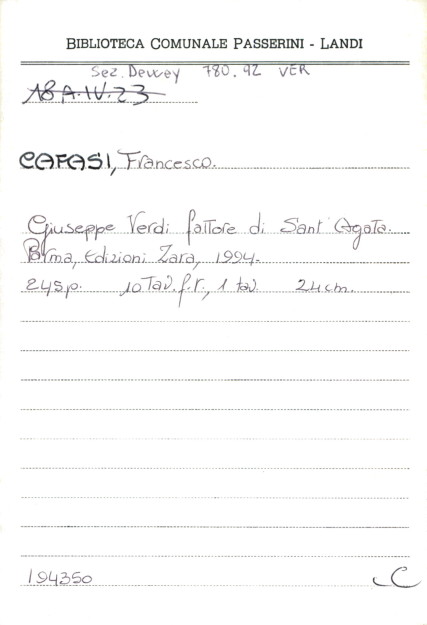 BIBLIOTECA COMUNALE PASSERINI - LANDI
Sez. Dewey 780.92 VER
18 A.IV.23
CAFASI, Francesco.
Giuseppe Verdi fattore di Sant'Agata.
Parma, Edizioni Zara, 1994.
245p. 10 Tav. f.t., 1 tav. 24cm.
194350
C